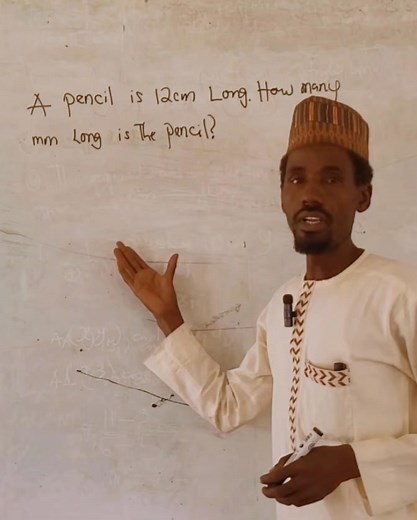 A pencil is 12cm Long. How many
mm Long is The pencil?